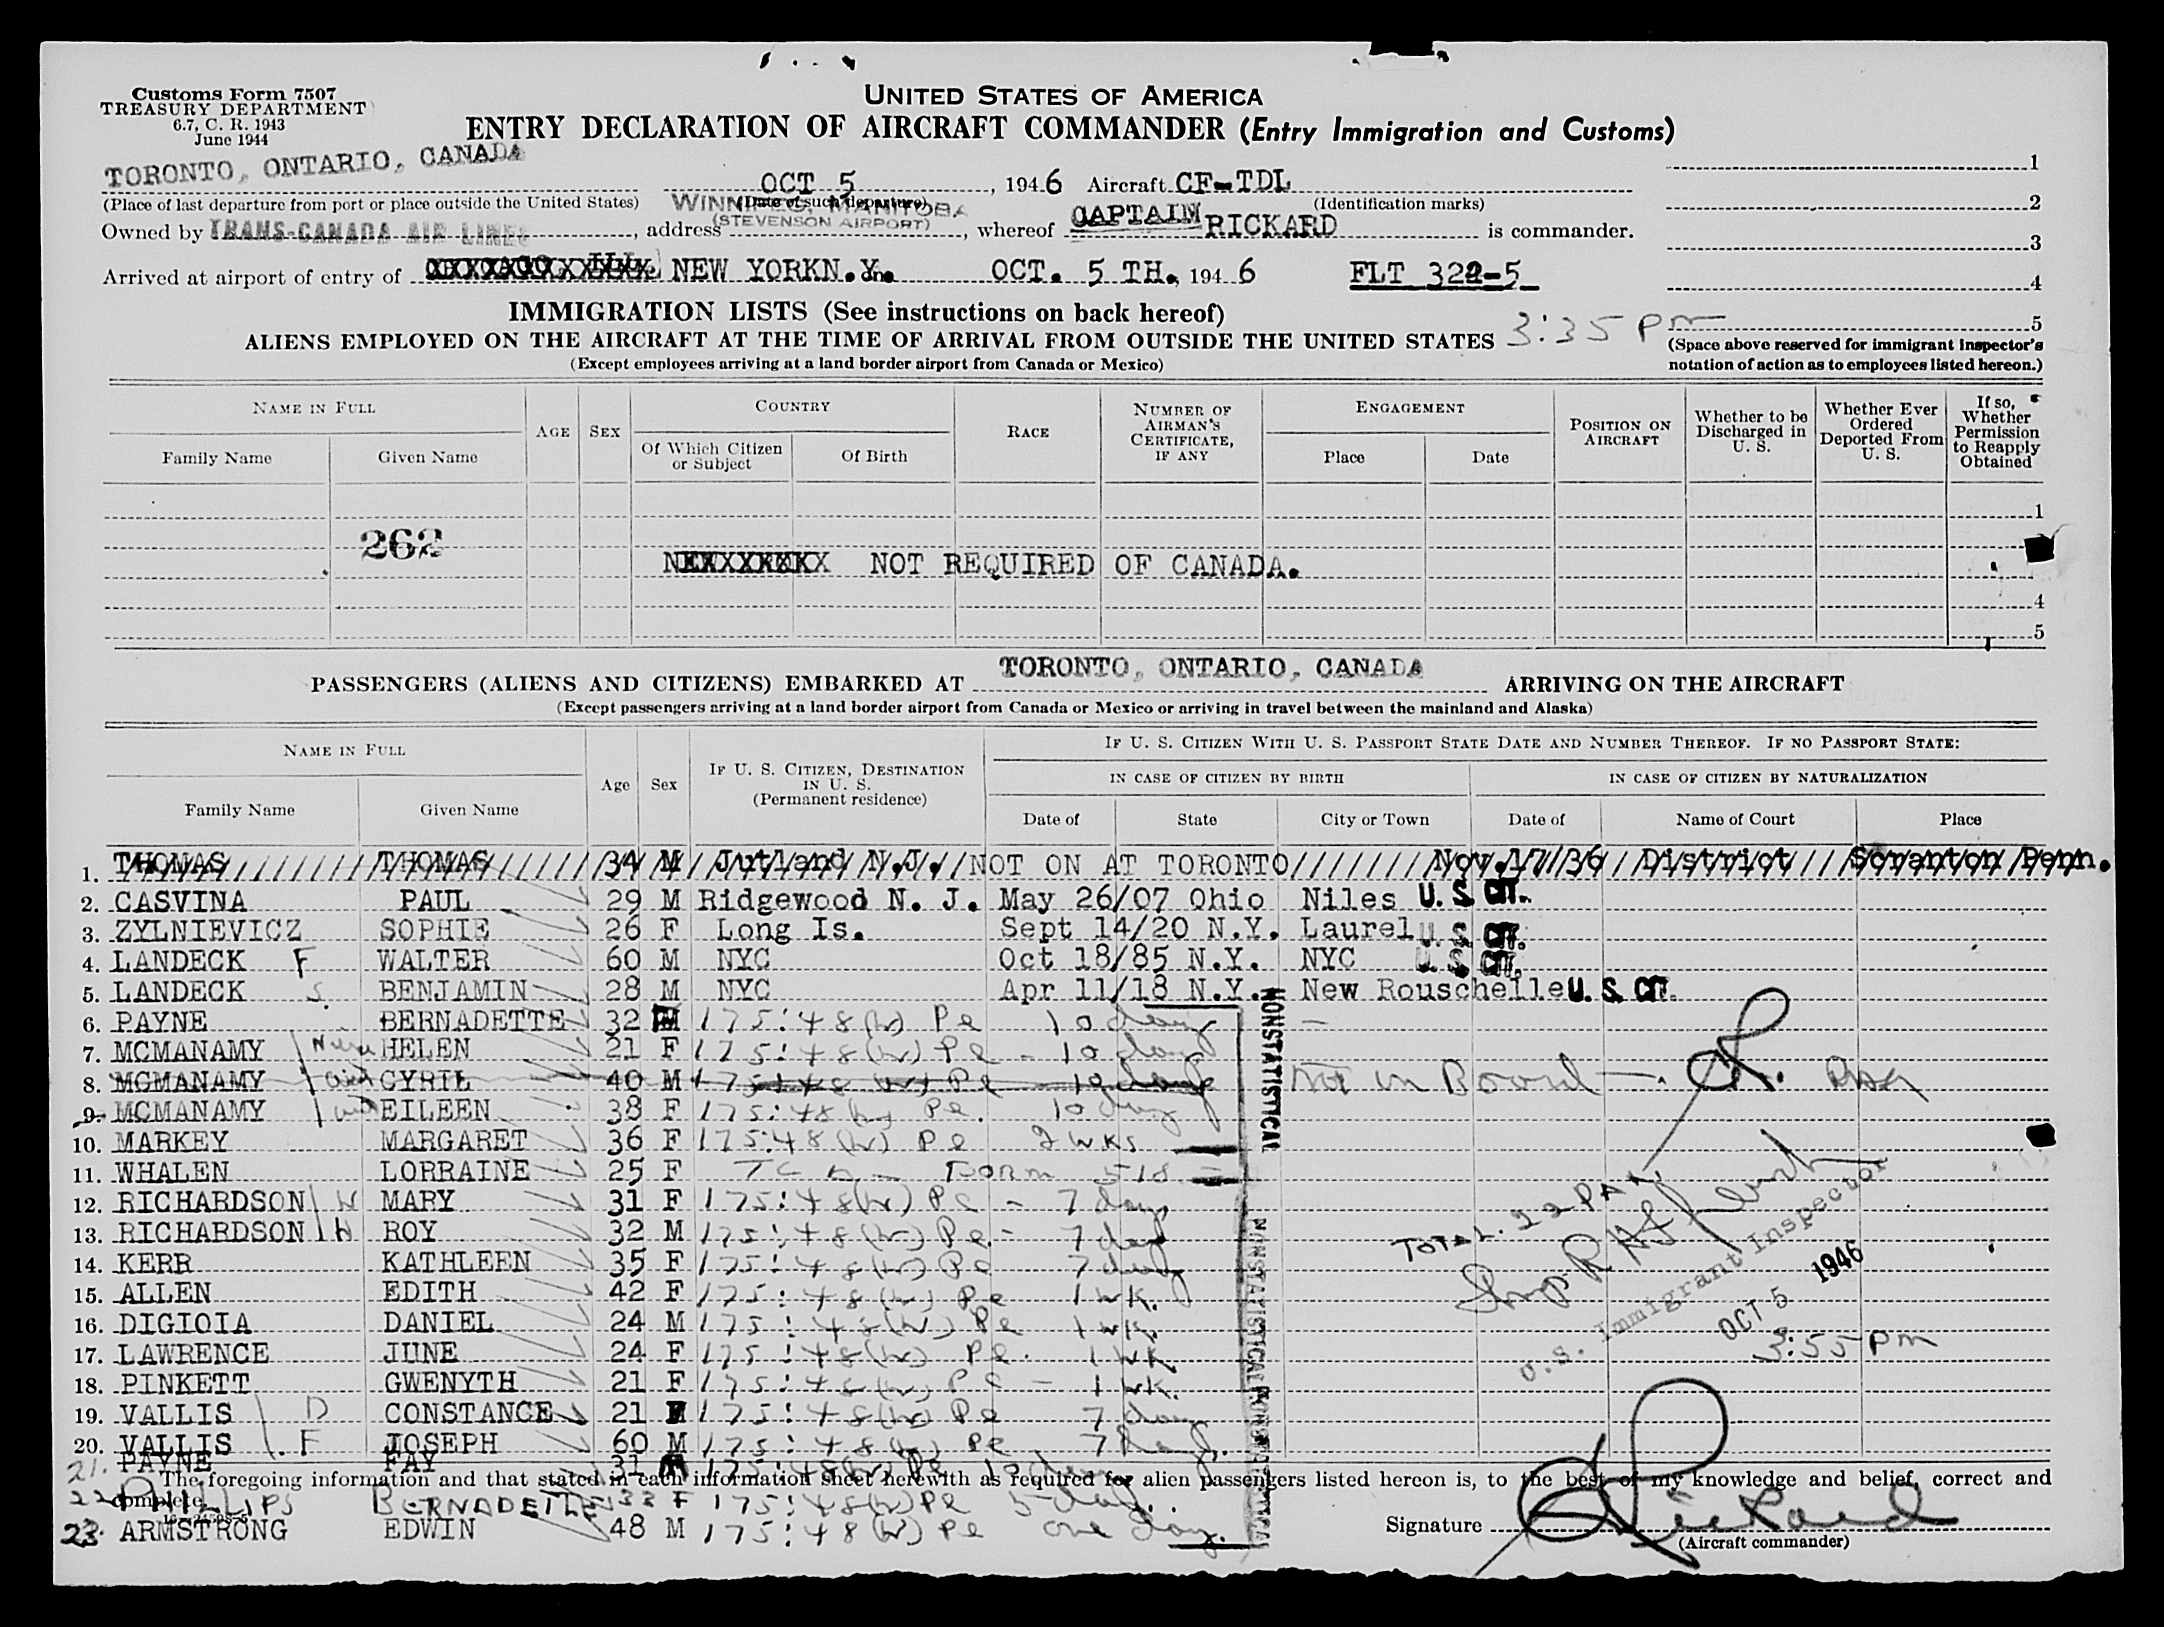 Customs Form 7507
TREASURY DEPARTMENT
6.7, C. R. 1943
June 1944
UNITED STATES OF AMERICA
ENTRY DECLARATION OF AIRCRAFT COMMANDER (Entry Immigration and Customs)
TORONTO, ONTARIO, CANADA OCT 5, 1946 Aircraft CF-TDL 1
(Place of last departure from port or place outside the United States) (Date of such departure) (Identification marks) 2
WINNIPEG, MANITOBA
(STEVENSON AIRPORT)
Owned by TRANS-CANADA AIR LINES, address , whereof CAPTAIN RICKARD is commander. 3
Arrived at airport of entry of NEW YORK N.Y. OCT. 5 TH., 1946 FLT 322-5 4
IMMIGRATION LISTS (See instructions on back hereof)
ALIENS EMPLOYED ON THE AIRCRAFT AT THE TIME OF ARRIVAL FROM OUTSIDE THE UNITED STATES 3:35 Pm 5
(Except employees arriving at a land border airport from Canada or Mexico)
(Space above reserved for immigrant inspector's
notation of action as to employees listed hereon.)
NAME IN FULL
Family Name Given Name
AGE SEX
COUNTRY
Of Which Citizen or Subject Of Birth
RACE
NUMBER OF AIRMAN'S CERTIFICATE, IF ANY
ENGAGEMENT
Place Date
POSITION ON AIRCRAFT
Whether to be Discharged in U. S.
Whether Ever Ordered Deported From U. S.
If so, Whether Permission to Reapply Obtained
1
262
NOT REQUIRED OF CANADA.
4
5
PASSENGERS (ALIENS AND CITIZENS) EMBARKED AT TORONTO, ONTARIO, CANADA ARRIVING ON THE AIRCRAFT
(Except passengers arriving at a land border airport from Canada or Mexico or arriving in travel between the mainland and Alaska)
NAME IN FULL
Family Name Given Name
Age Sex
IF U. S. CITIZEN, DESTINATION IN U. S. (Permanent residence)
IF U. S. CITIZEN WITH U. S. PASSPORT STATE DATE AND NUMBER THEREOF. IF NO PASSPORT STATE:
IN CASE OF CITIZEN BY BIRTH IN CASE OF CITIZEN BY NATURALIZATION
Date of State City or Town Date of Name of Court Place
1. THOMAS THOMAS 34 M Jutland N.J. NOT ON AT TORONTO Nov.17/36 District Scranton Penn.
2. CASVINA PAUL 29 M Ridgewood N. J. May 26/07 Ohio Niles U. S. CIT.
3. ZYLNIEVICZ SOPHIE 26 F Long Is. Sept 14/20 N.Y. Laurel U. S. CIT.
4. LANDECK F WALTER 60 M NYC Oct 18/85 N.Y. NYC U. S. CIT.
5. LANDECK S BENJAMIN 28 M NYC Apr 11/18 N.Y. New Rouschelle U. S. CIT.
6. PAYNE BERNADETTE 32 175:48(b) Pe 10 days
7. MCMANAMY HELEN 21 F 175:48(b) Pe - 10 days
8. MCMANAMY CYRIL 40 M 175:48(b) Pe 10 days Not on Board
9. MCMANAMY EILEEN 38 F 175:48(b) Pe. 10 days
10. MARKEY MARGARET 36 F 175:48(b) Pe 2 wks
11. WHALEN LORRAINE 25 F TCA - Form 518
12. RICHARDSON W MARY 31 F 175:48(b) Pe - 7 days
13. RICHARDSON H ROY 32 M 175:48(b) Pe - 7 days
14. KERR KATHLEEN 35 F 175:48(b) Pe 7 days
15. ALLEN EDITH 42 F 175:48(b) Pe 1 wk.
16. DIGIOIA DANIEL 24 M 175:48(b) Pe 1 wk.
17. LAWRENCE JUNE 24 F 175:48(b) Pe. 1 wk
18. PINKETT GWENYTH 21 F 175:48(b) Pe - 1 wk.
19. VALLIS D CONSTANCE 21 F 175:48(b) Pe 7 days
20. VALLIS F JOSEPH 60 M 175:48(b) Pe 7 days.
21. PAYNE FAY 31 M 175:48(b) Pe 10 days
The foregoing information and that stated in each information sheet herewith as required for alien passengers listed hereon is, to the best of my knowledge and belief, correct and
complete.
22. PHILLIPS BERNADETTE 33 F 175:48(b) Pe 5 days.
23. ARMSTRONG EDWIN 48 M 175:48(b) Pe one day.
NONSTATISTICAL
NONSTATISTICAL
NONSTATISTICAL
TOTAL. 22 PAX.
U. S. Immigrant Inspector
OCT 5 1946
3:55 pm
Signature Rickard
(Aircraft commander)